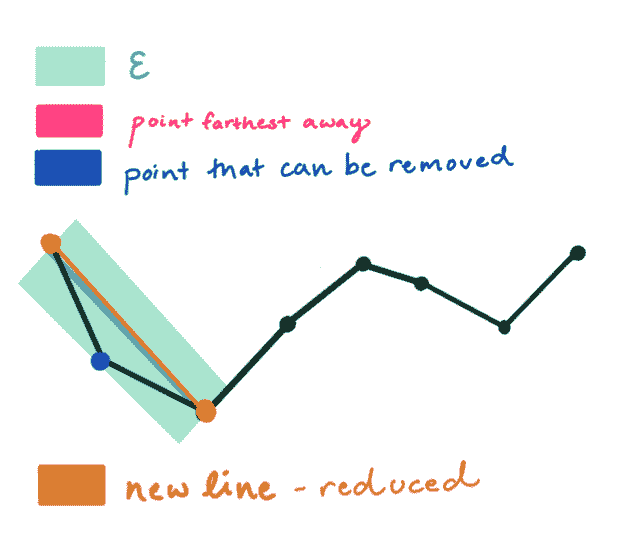 ε
point farthest away
point that can be removed
new line - reduced